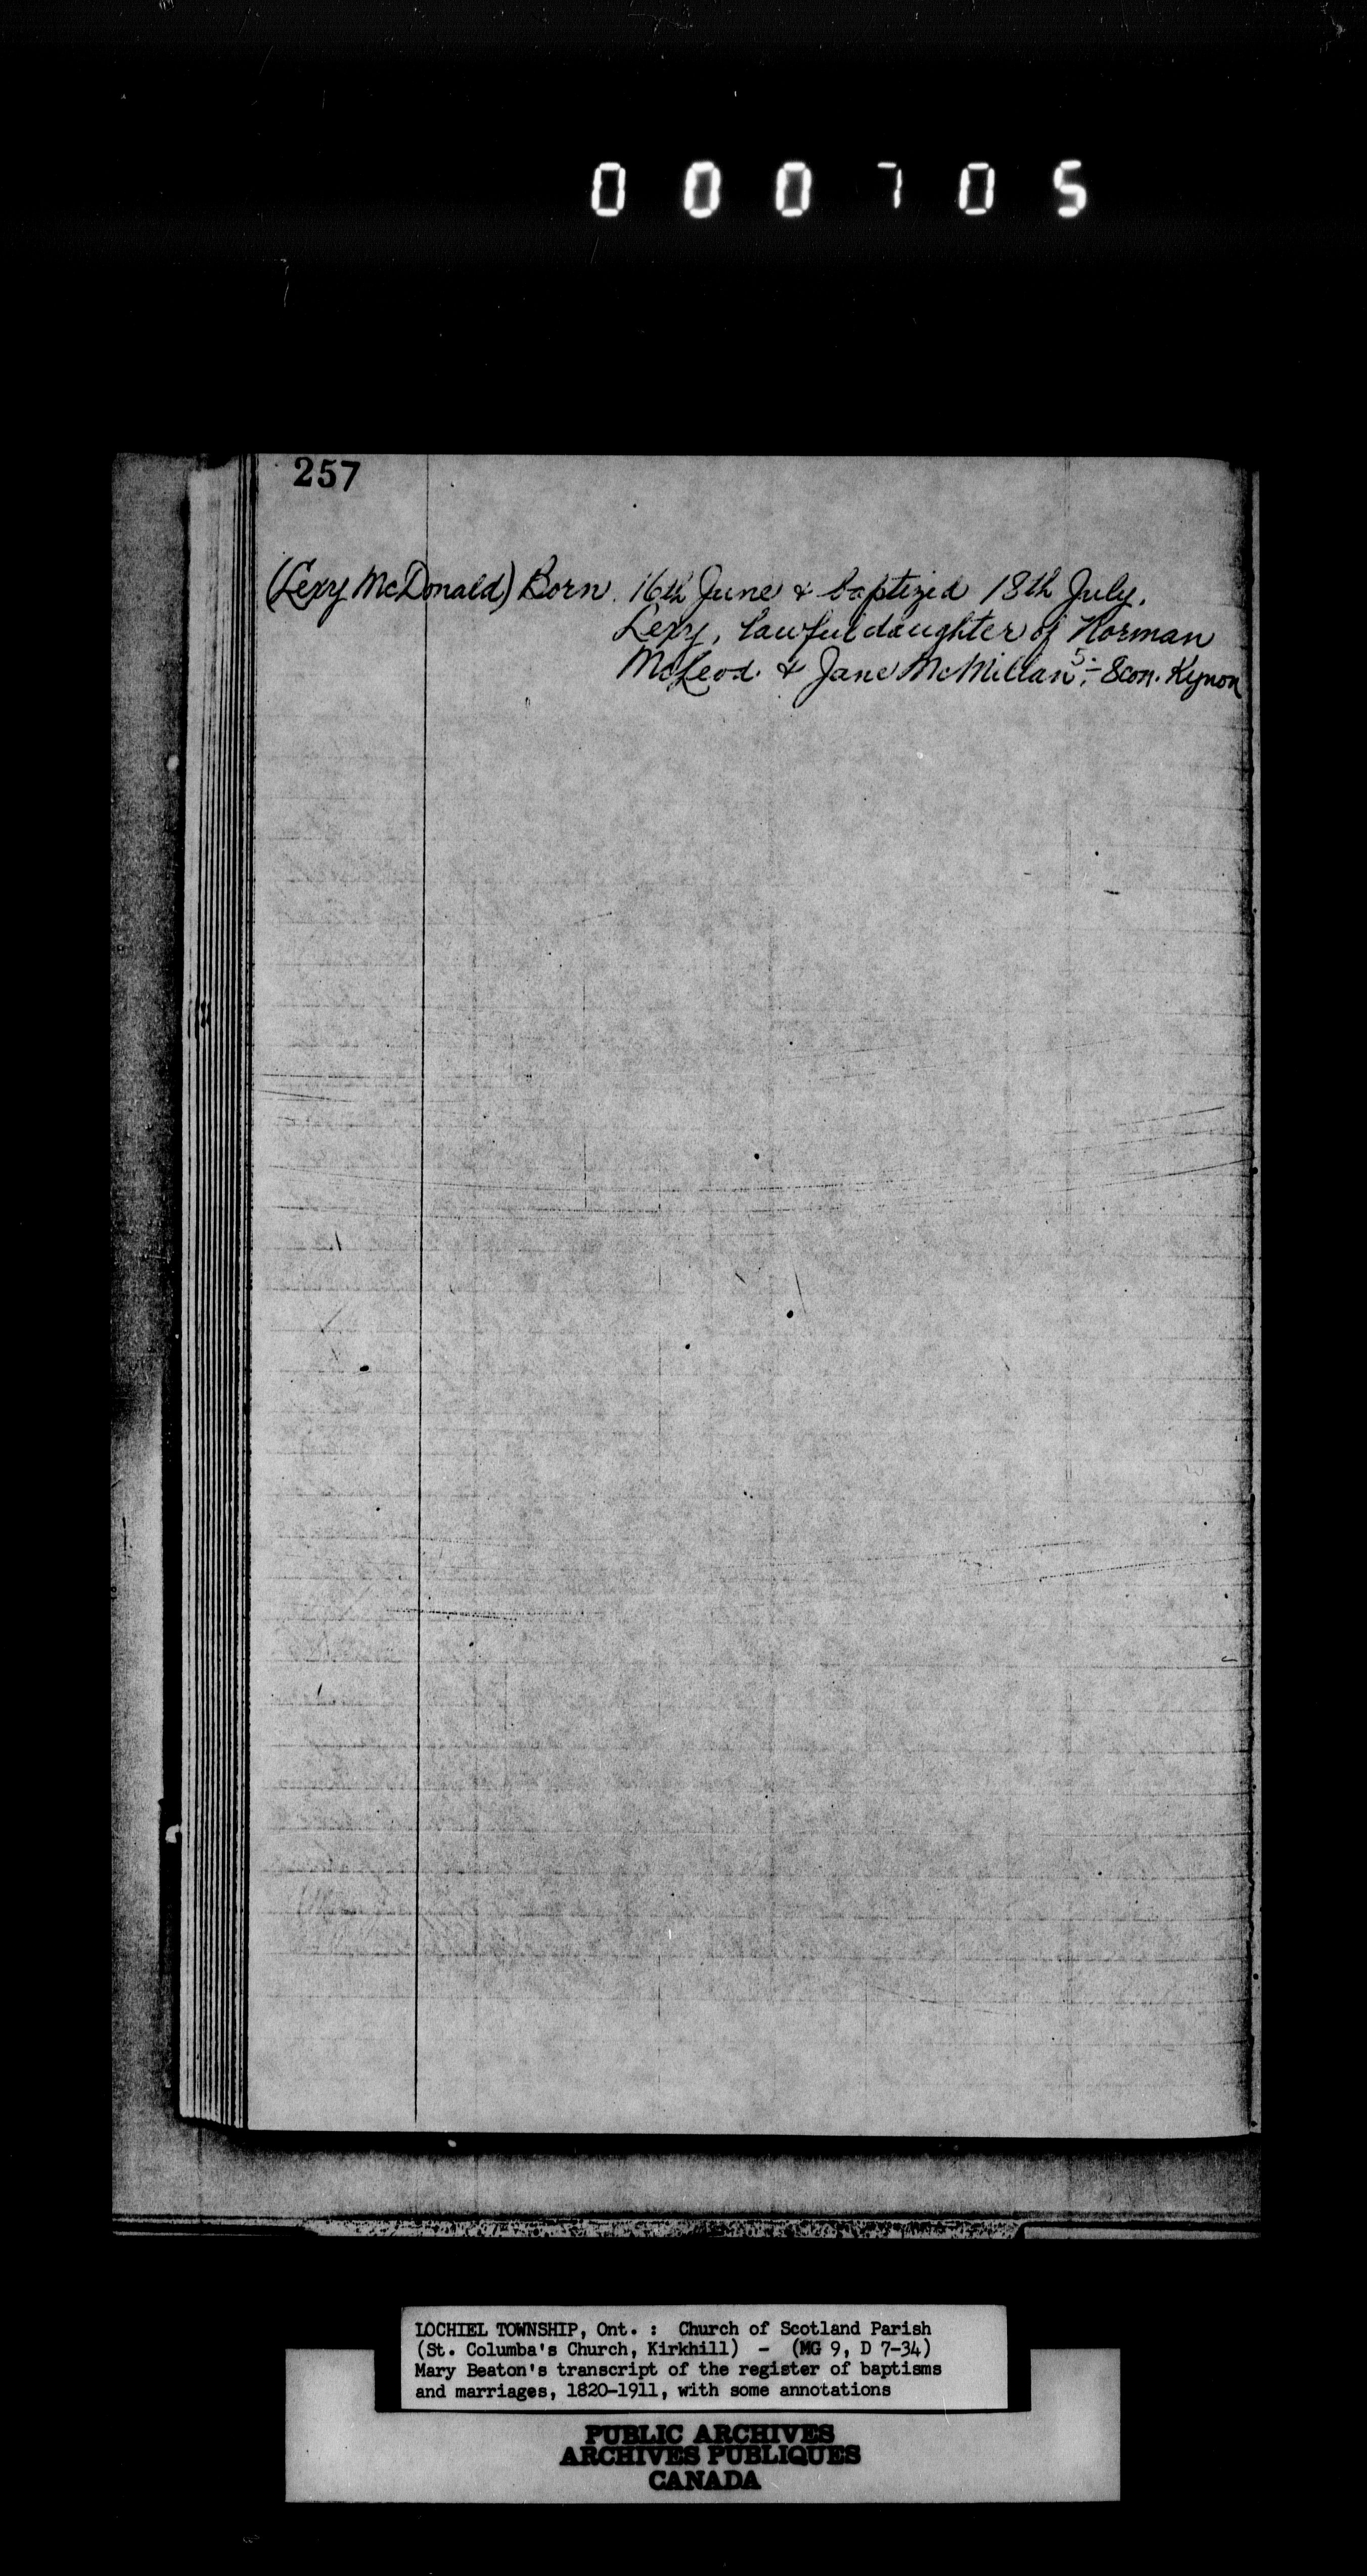 000705
257
(Lexy McDonald) Born 16th June & baptized 18th July,
Lexy, lawful daughter of Norman
McLeod. & Jane McMillan 5:- 8con. Kynon
LOCHIEL TOWNSHIP, Ont. : Church of Scotland Parish
(St. Columba's Church, Kirkhill) - (MG 9, D 7-34)
Mary Beaton's transcript of the register of baptisms
and marriages, 1820-1911, with some annotations
PUBLIC ARCHIVES
ARCHIVES PUBLIQUES
CANADA